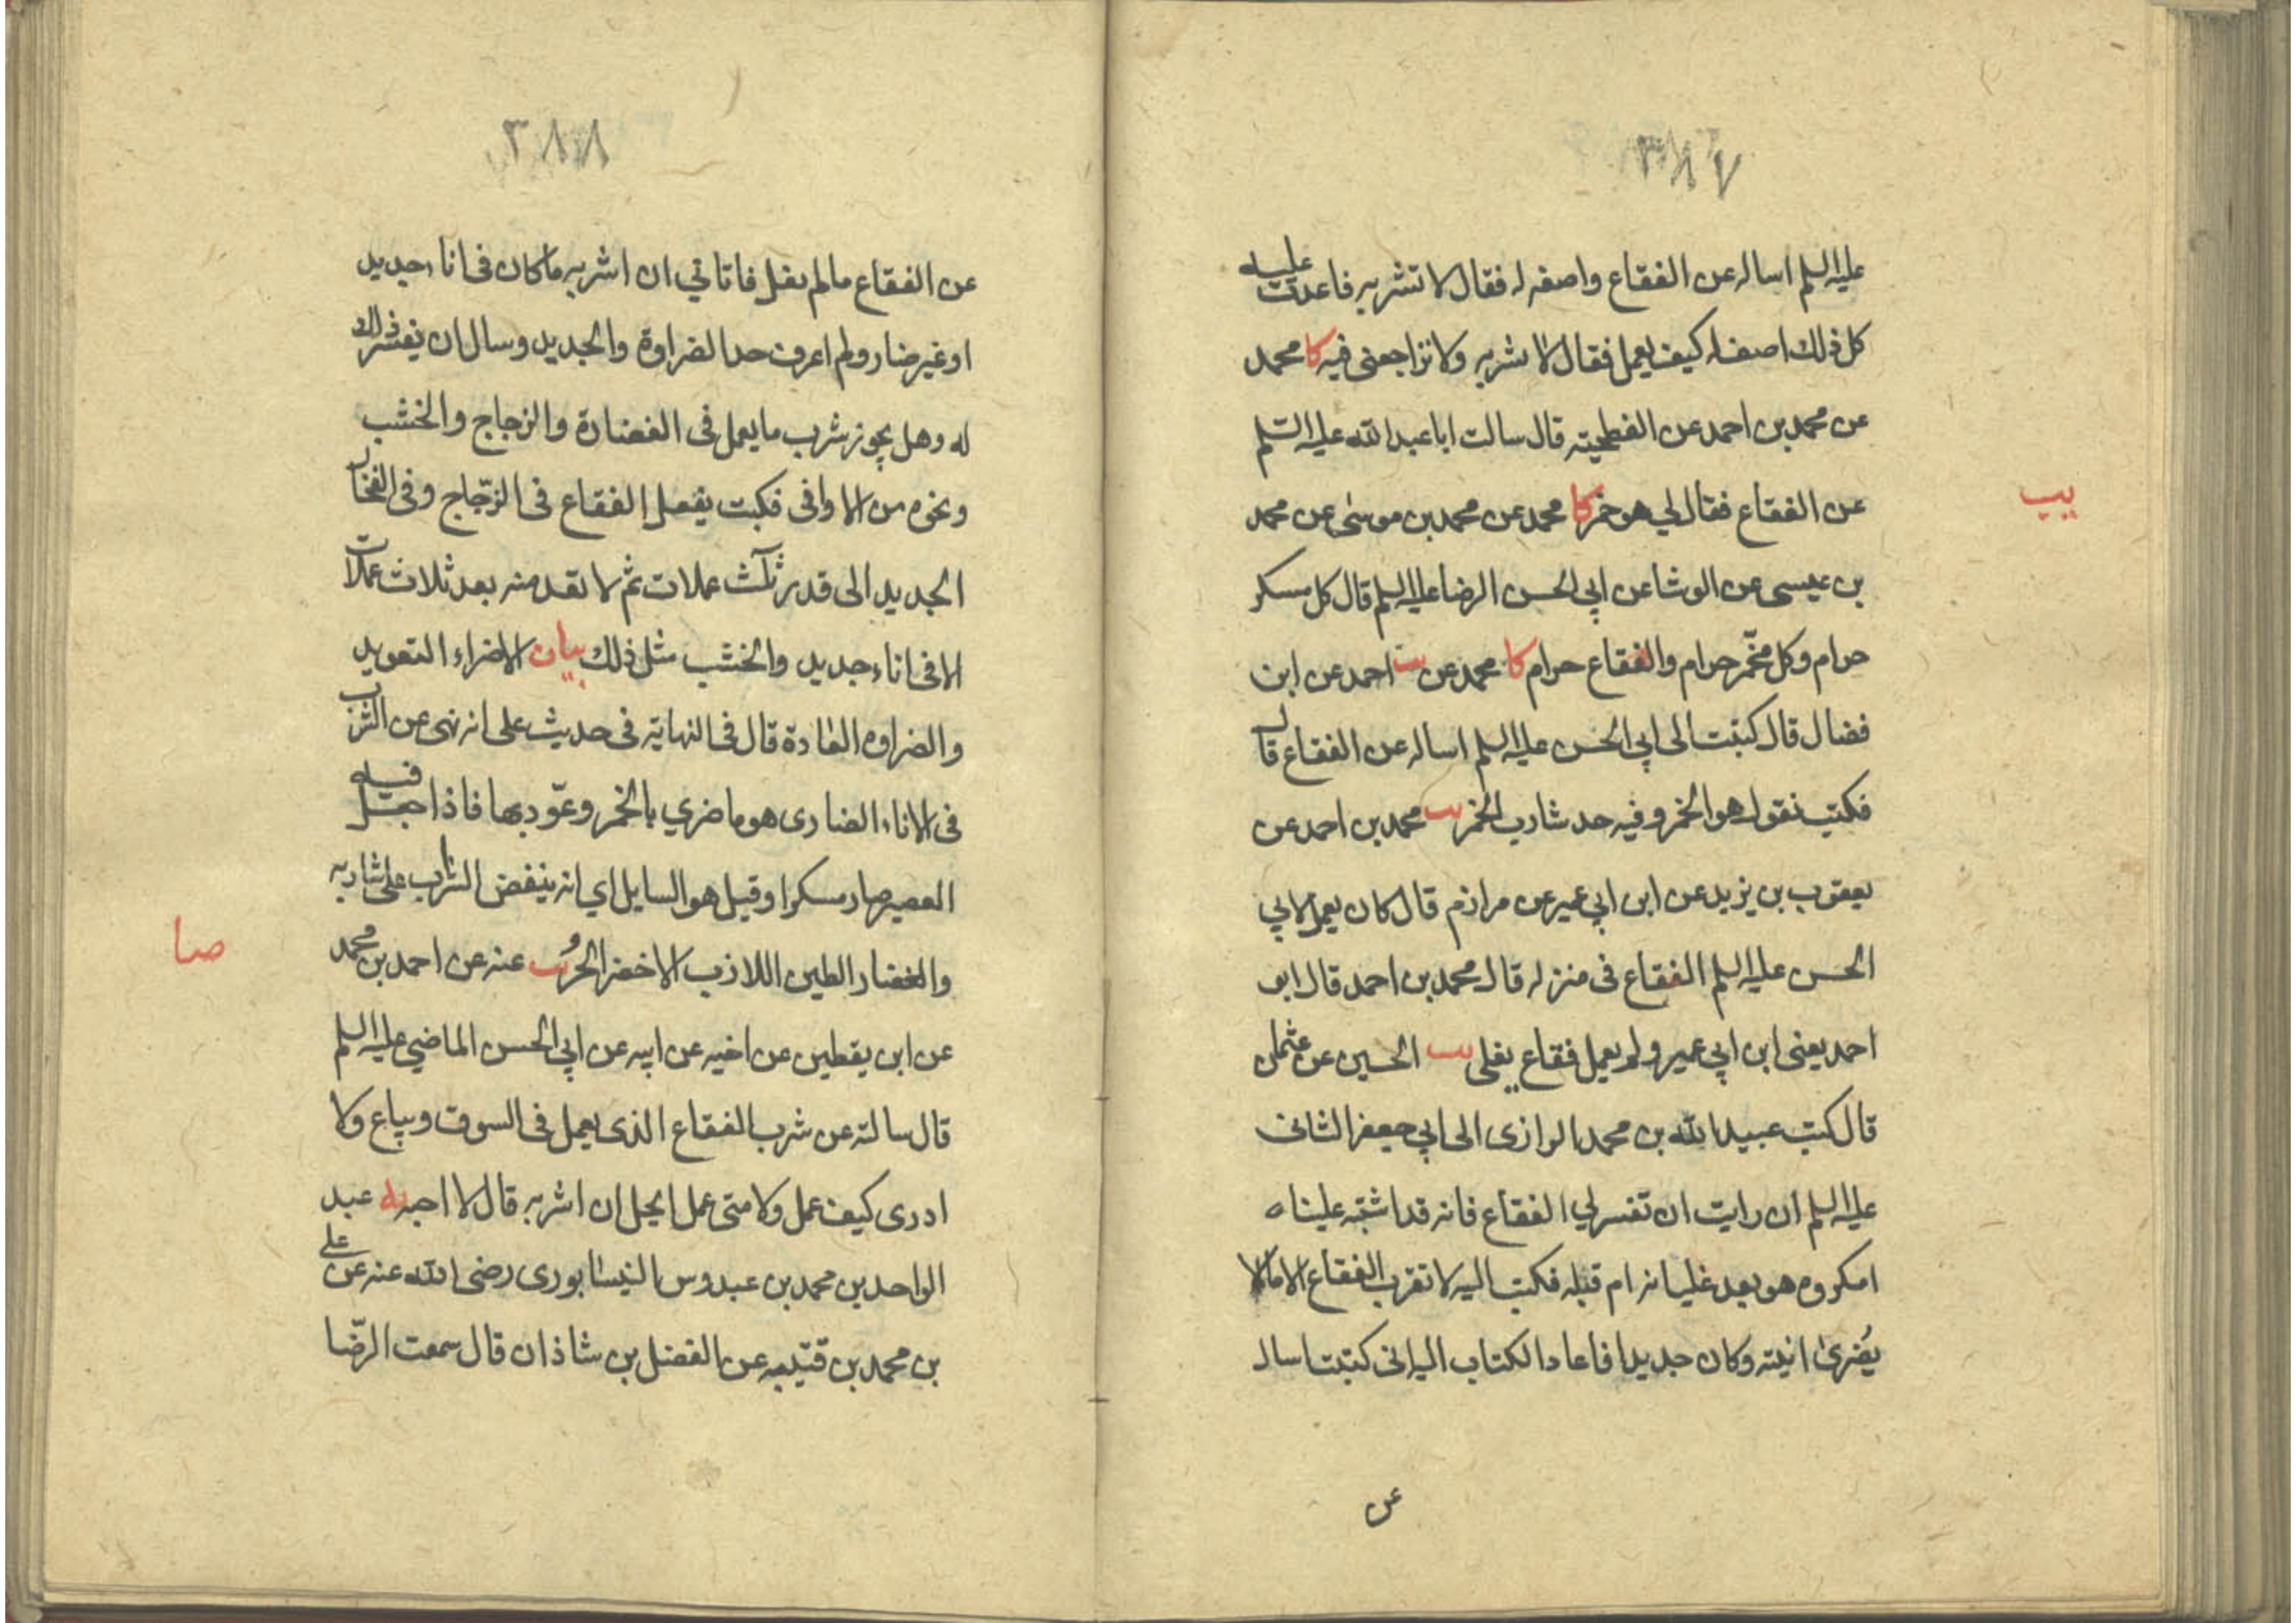 ٣٨٧
عليه السلم اساله عن الفقاع واصفه له فقال لا تشربه فاعدت عليه
كل ذلك اصفه له كيف يعمل فقال لا تشربه ولا تراجعنى فيه كا محمد
عن محمد بن احمد عن الفطحية قال سالت ابا عبد الله عليه السّلم
يب
عن الفقاع فقال لي هو خمر كا محمد عن محمد بن موسىٰ عن محمد
بن عيسى عن الوشا عن ابي الحسن الرضا عليه السلم قال كل مسكر
حرام وكل مخمّر حرام والفقاع حرام كا محمد عن يب احمد عن ابن
فضال قال كتبت الى ابي الحسن عليه السلم اساله عن الفقاع قال
فكتب نقول هو الخمر وفيه حد شارب الخمر يب محمد بن احمد عن
يعقوب بن يزيد عن ابن ابي عمير عن مرازم قال كان يعمل لابي
الحسن عليه السلم الفقاع فى منزله قال محمد بن احمد قال ابو
احمد يعنى ابن ابي عمير ولم يعمل فقاع يغلى يب الحسين عن عثمٰن
قال كتب عبيد الله بن محمد الرازى الى ابي جعفر الثانى
عليه السلم ان رايت ان تفسر لي الفقاع فانه قد اشتبه علينا ه
امكروه هو بعد غليانه ام قبله فكتب اليه لا تقرب الفقاع الا ما لا
يُضرىٰ انيته وكان جديدا فاعاد الكتاب اليه انى كتبت اسال
عن
٣٨٨
عن الفقاع ما لم يغل فاتاني ان اشربه ما كان فى اناء جديد
او غير ضار ولم اعرف حد الضراوة والجديد وسال ان يفسر ذلك
له وهل يجوز شرب ما يعمل فى الغضارة والزجاج والخشب
ونحوه من الاوانى فكتب يفعل الفقاع فى الزّجاج وفى الفخار
الجديد الى قدر ثلٰث عملات ثم لا تعد منه بعد ثلاث عملات
الا فى اناء جديد والخشب مثل ذلك بيان الاضراء التعويد
والضراوه العادة قال فى النهاية فى حديث على انه نهى عن الشرب
فى الاناء الضارى هو ما ضري بالخمر وعوّد بها فاذا جعل فيه
العصير صار مسكرا وقيل هو السايل اي انه ينغض الشراب على شاربه
صا
والغضار الطين اللازب الاخضر الحُرّ يب عنه عن احمد بن محمد
عن ابن يقطين عن اخيه عن ابيه عن ابي الحسن الماضي عليه السلم
قال سالته عن شرب الفقاع الذى يعمل فى السوق ويباع ولا
ادرى كيف عمل ولا متى عمل ايحل ان اشربه قال لا احبه يه عبد
الواحد بن محمد بن عبدوس النيسابورى رضى الله عنه عن على
بن محمد بن قتيبه عن الفضل بن شاذان قال سمعت الرّضا